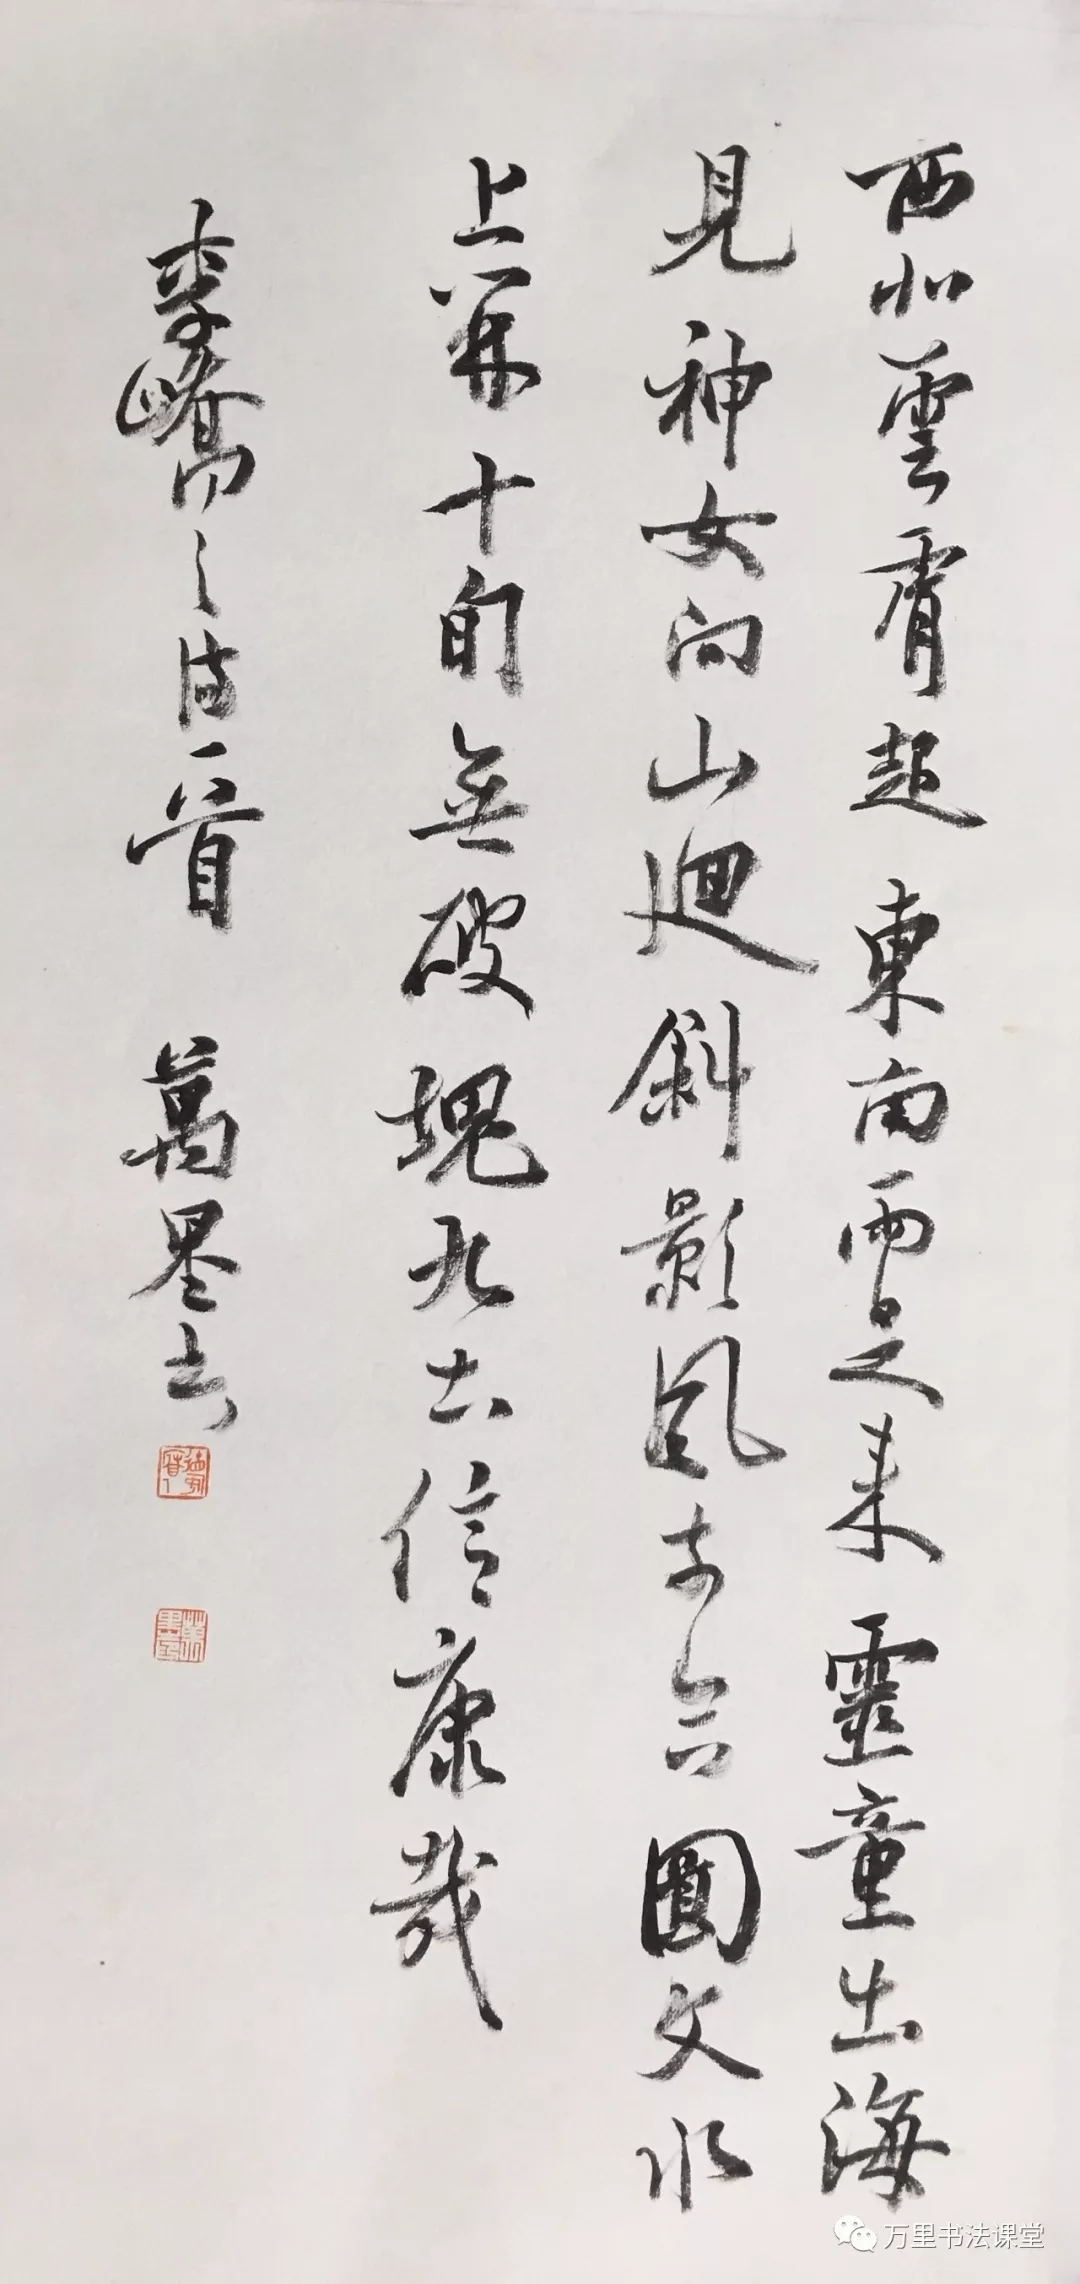 西北雲膚起東南雨足来靈童出海
見神女向山迴斜影風前合圓文水
上開十旬無破塊九土信康哉
李嶠之詩一首 萬墨书
万里书法课堂